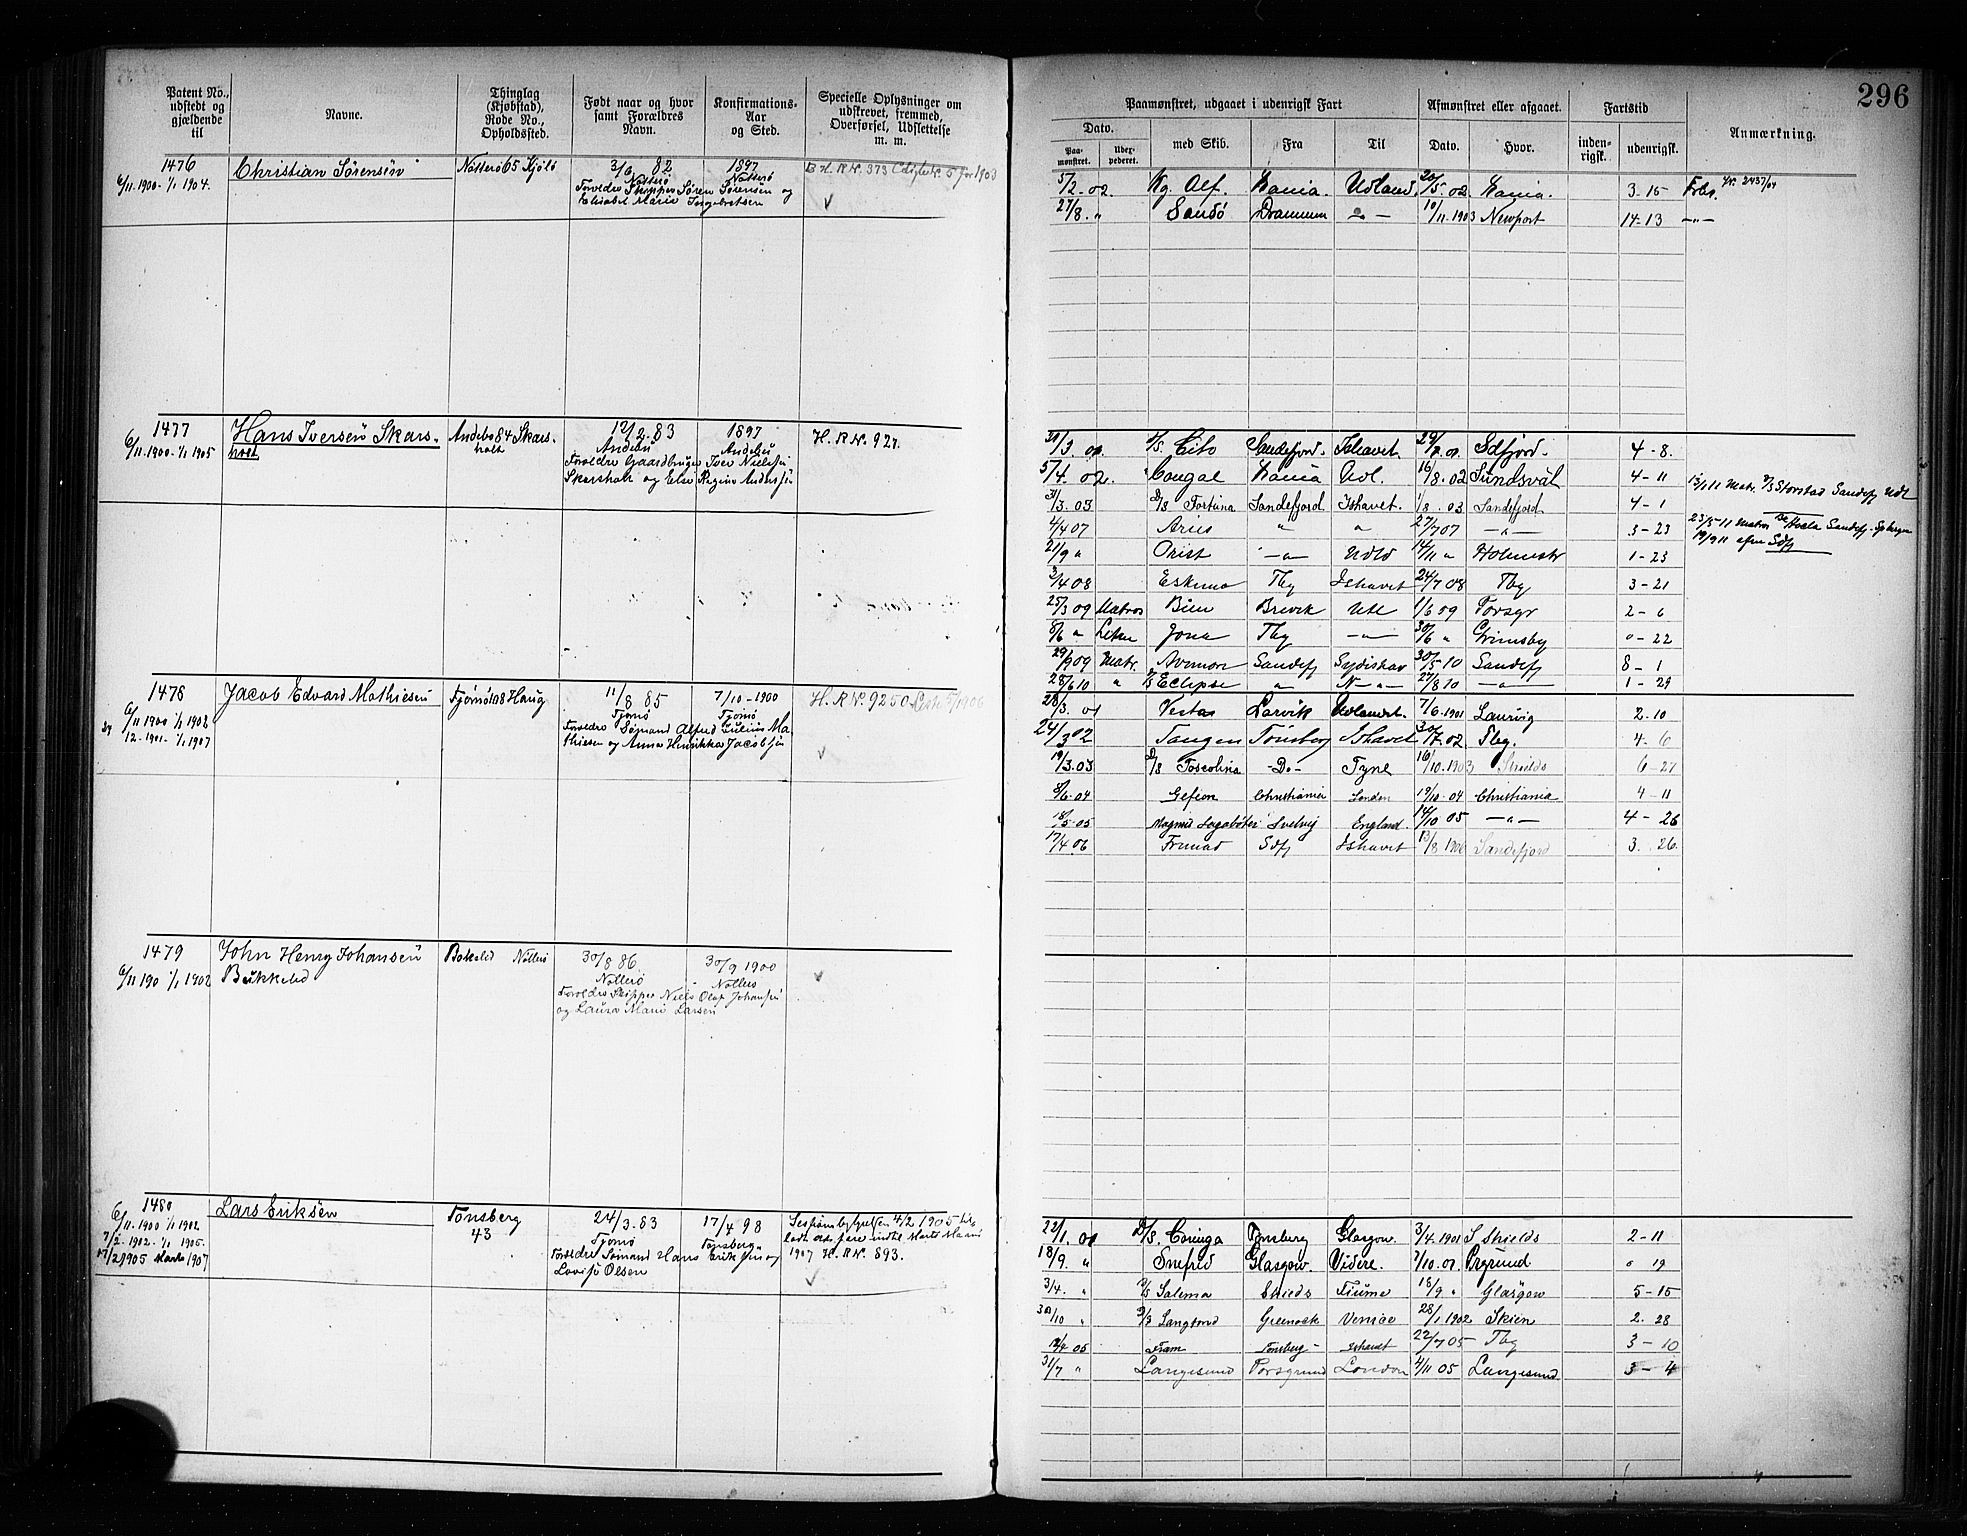 296
Patent No., udstedt og gjældende til
Navne.
Thinglag (Kjøbstad), Rode No., Opholdssted.
Født naar og hvor samt Forældres Navn.
Konfirmations-Aar og Sted.
Specielle Oplysninger om udstrevet, fremmed, Overførsel, Udslettelse m. m.
Paamønstret, udgaaet i udenrigsk Fart
Afmønstret eller afgaaet.
Fartstid
Anmærkning.
Dato.
Paa-mønstret.
med Skib.
Fra
Til
Dato.
Hvor.
inden-rigsk.
udenrigsk.
1476
6/11.1900-1/1 1904.
Christian Sørensen
Nøtterø 65 Kjøle
3/6 82
Nøtterø
Forældre Skipper Søren Sørensen og
Elisabet Marie Ingebretsen
1897
Nøtterø
5/2.02 Kg. Alf. Udland 20/5.02 3-15 Frbg.
27/8. " Sandø Drammen 10/11.1903 Newport 14-13 -"-
1477
6/11.1900-1/1 1905
Hans Iversen Skars-
holt
Andebu 84 Skars-
holt
12/2.83
Andebu
Forældre Gaardbruger Iver Nielsen
Skarsholt og Else Regine Andersen
1897
Andebu
H.R.N. 927.
Cito Sandefjord Ishavet Sdfjord 4-8.
5/4.02. 16/8.02 Sundsval 4-11
31/3.03 D/S Fortuna Sandefjord Ishavet. 1/8.03 Sandefjord 4-1
4/4 07 Aries " " 27/7 07 -"- 3-23
21/9 " Orist -"- Udld 14/11 " Holmestr 1-23
3/4 08 Eskimo Tbg Ishavet 24/7 08 Tbg 3-21
25/3 09 Matros Bien Brevik Udl 1/6 09 Porsgr 2-6
8/6 " Jona Tbg -"- 30/6 " Grimsby 0-22
29/9 09 Matr. Avemore Sandefj Sydishav 30/5 10 Sandefj 8-1
28/6 10 " Eclipse " N-"- 27/8 10 -"- 1-29
1478
6/11 1900 1/1 1902
12.1901-1/1 1907
Jacob Edvard Mathiesen
Tjømø 108 Haug
11/8 85
Tjømø
Forældre Sømand Alfred Julius Ma
thiesen og Anna Henrikka Jacobsen
7/10-1900
Tjømø
H.R.N. 9250
28/3.01 Vesta Larvik Udlandet. 7/6.1901 Laurvig 2-10
24/3 02 Tangen Tønsberg Ishavet 30/7.02 Tbg. 4-6
19/3.03 D/S Toscolina -Do- Tyne 16/10.1903 Shields 6-27
8/6.04 Gefion Christiania London 19/10.04 Christiania 4-11
18/5.05 Magnus Lagabøter Svelvig England. 14/10 05 -"- 4-26
17/4 06 Sdfj Ishavet 13/8 1906 Sandefjord 3.26
1479
6/11 190 1/1 1902
John Henry Johansen
Bukkelid
Nøtterø
30/8 86
Nøtterø
Forældre Skipper Niels Olaf Johansen
og Laura Marie Larsen
30/9 1900
Nøtterø
1480
6/11.1900 1/1 1902.
7/2-1902.-1/1 1905.
17/2 1905 Marts 1907
Lars Eriksen
Tønsberg
43
24/3.83
Tjømø
Forældre Sømand Hans Eriksen og
Lovise Olsen
17/4 98
Tønsberg
1907 H.R.N. 893.
22/1.01 D/S. Coringa Tønsberg Glasgow. 3/4.1901 S Shields 2-11
18/9. " Snefrid Glasgow. Videre. 7/10.01. Prgrund " 19
3/4. " D/S Salerno Shields Fiume 18/9 " Glasgow 5-15
30/10 " D/S Langesund Greenock Venice 28/1 1902 Skien 2.28
12/4 05 Fram Tønsberg Ishavet 22/7 05 Tbg 3-10
31/7 " Langesund Porsgrund London 4/11 05 Langesund 3-4